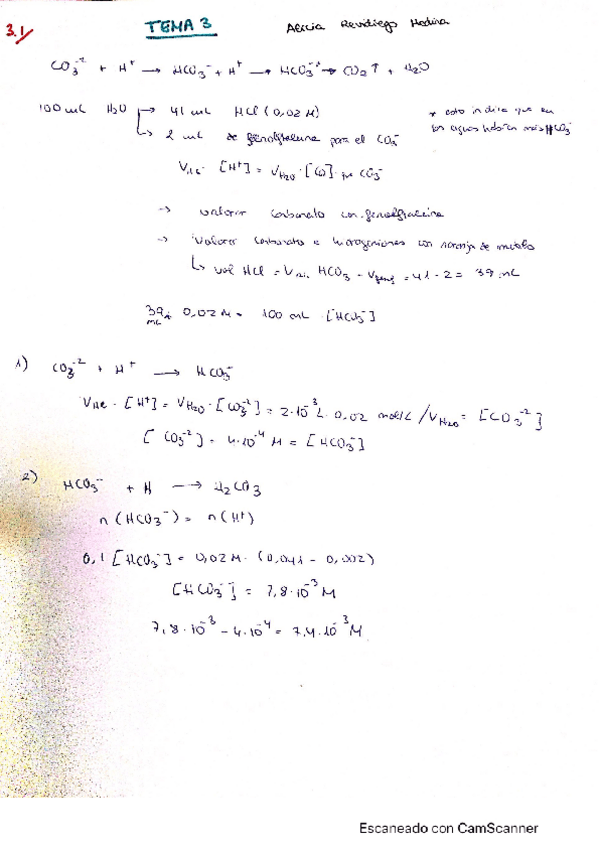 3.1/ TEMA 3 Alicia Revidiego Medina
CO₃⁻² + H⁺ → HCO₃⁻ + H⁺ → HCO₃⁻ → CO₂↑ + H₂O
100 mL H₂O → 41 mL HCl (0,02 M) * esto indica que en
↳ 2 mL de fenolftaleína para el CO₃⁻ las aguas habrán más HCO₃⁻
· [H⁺] = V_H₂O ·
→ valorar carbonato con fenolftaleína
→ valorar carbonato e hidrogeniones con naranja de metilo
↳ vol HCl = HCO₃ - = 41 - 2 = 39 mL
39 mL · 0,02 M = 100 mL · [HCO₃⁻]
1) CO₃⁻² + H⁺ → HCO₃⁻
· [H⁺] = V_H₂O · [CO₃⁻²] = 2·10⁻³ L · 0,02 mol/L / V_H₂O = [CO₃⁻²]
[CO₃⁻²] = 4·10⁻⁴ M = [HCO₃⁻]
2) HCO₃⁻ + H → H₂CO₃
n (HCO₃⁻) = n (H⁺)
0,1 [HCO₃⁻] = 0,02 M · (0,041 - 0,002)
[HCO₃⁻] = 7,8·10⁻³ M
7,8·10⁻³ - 4·10⁻⁴ = 7,4·10⁻³ M
Escaneado con CamScanner